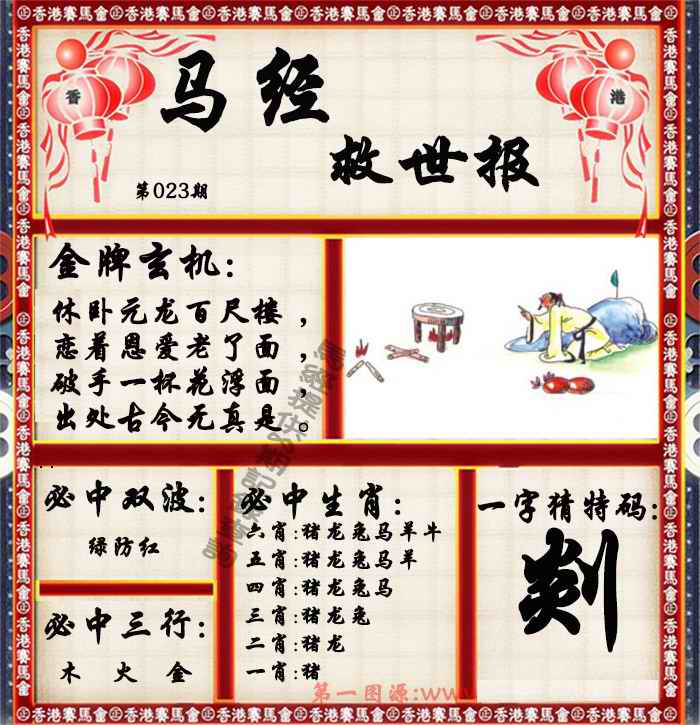 香港賽馬會㊣香港賽馬會㊣香港賽馬會㊣香港賽馬會㊣香港賽馬會㊣香港賽馬會
香
港
马经
救世报
第023期
金牌玄机:
休卧元龙百尺楼，
恋着恩爱老了面，
破手一杯花浮面，
出处古今无真是。
必中双波:
绿防红
必中三行:
木 火 金
必中生肖:
六肖:猪龙兔马羊牛
五肖:猪龙兔马羊
四肖:猪龙兔马
三肖:猪龙兔
二肖:猪龙
一肖:猪
一字猜特码:
剡
第一图源:www